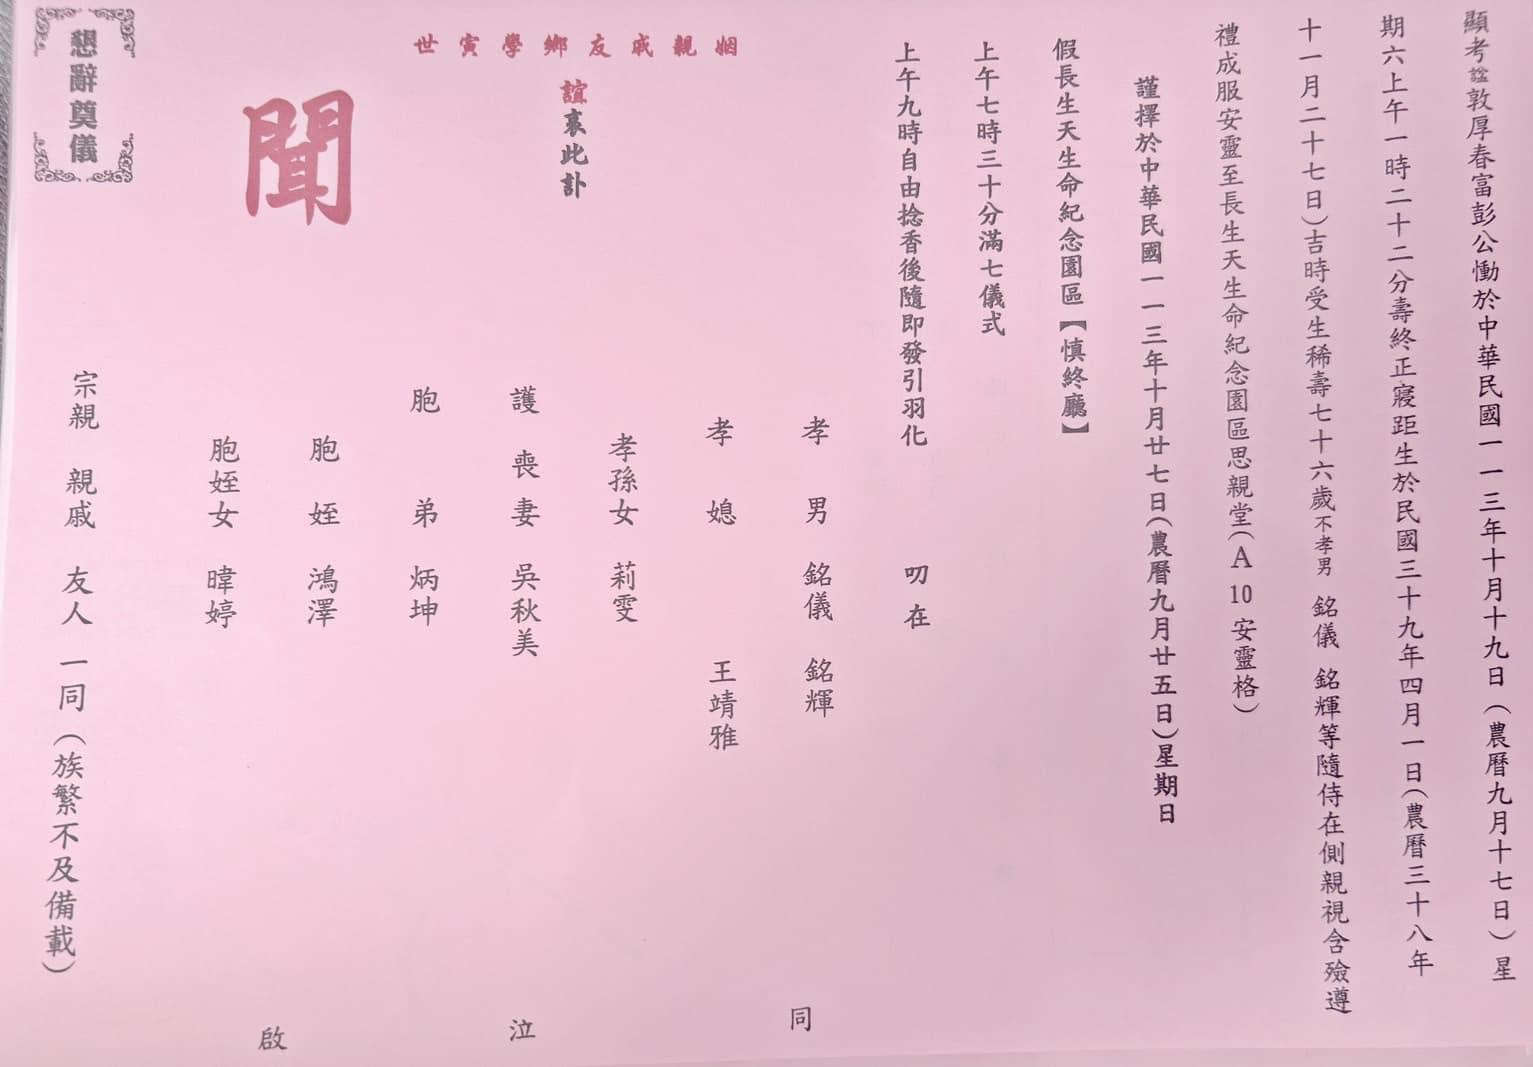 顯考諡敦厚春富彭公慟於中華民國一一三年十月十九日（農曆九月十七日）星
期六上午一時二十二分壽終正寢距生於民國三十九年四月一日（農曆三十八年
十一月二十七日）吉時受生稀壽七十六歲不孝男 銘儀 銘輝等隨侍在側親視含殮遵
禮成服安靈至長生天生命紀念園區思親堂（A10安靈格）
謹擇於中華民國一一三年十月廿七日（農曆九月廿五日）星期日
假長生天生命紀念園區【慎終廳】
上午七時三十分滿七儀式
上午九時自由捻香後隨即發引羽化
叨在
姻親戚友鄉學寅世
誼哀此訃
聞
孝男 銘儀 銘輝
孝媳 王靖雅
孝孫女 莉雯
護喪妻 吳秋美
胞弟 炳坤
胞姪 鴻澤
胞姪女 暐婷
宗親 親戚 友人 一同（族繁不及備載）
同 泣 啟
懇辭奠儀